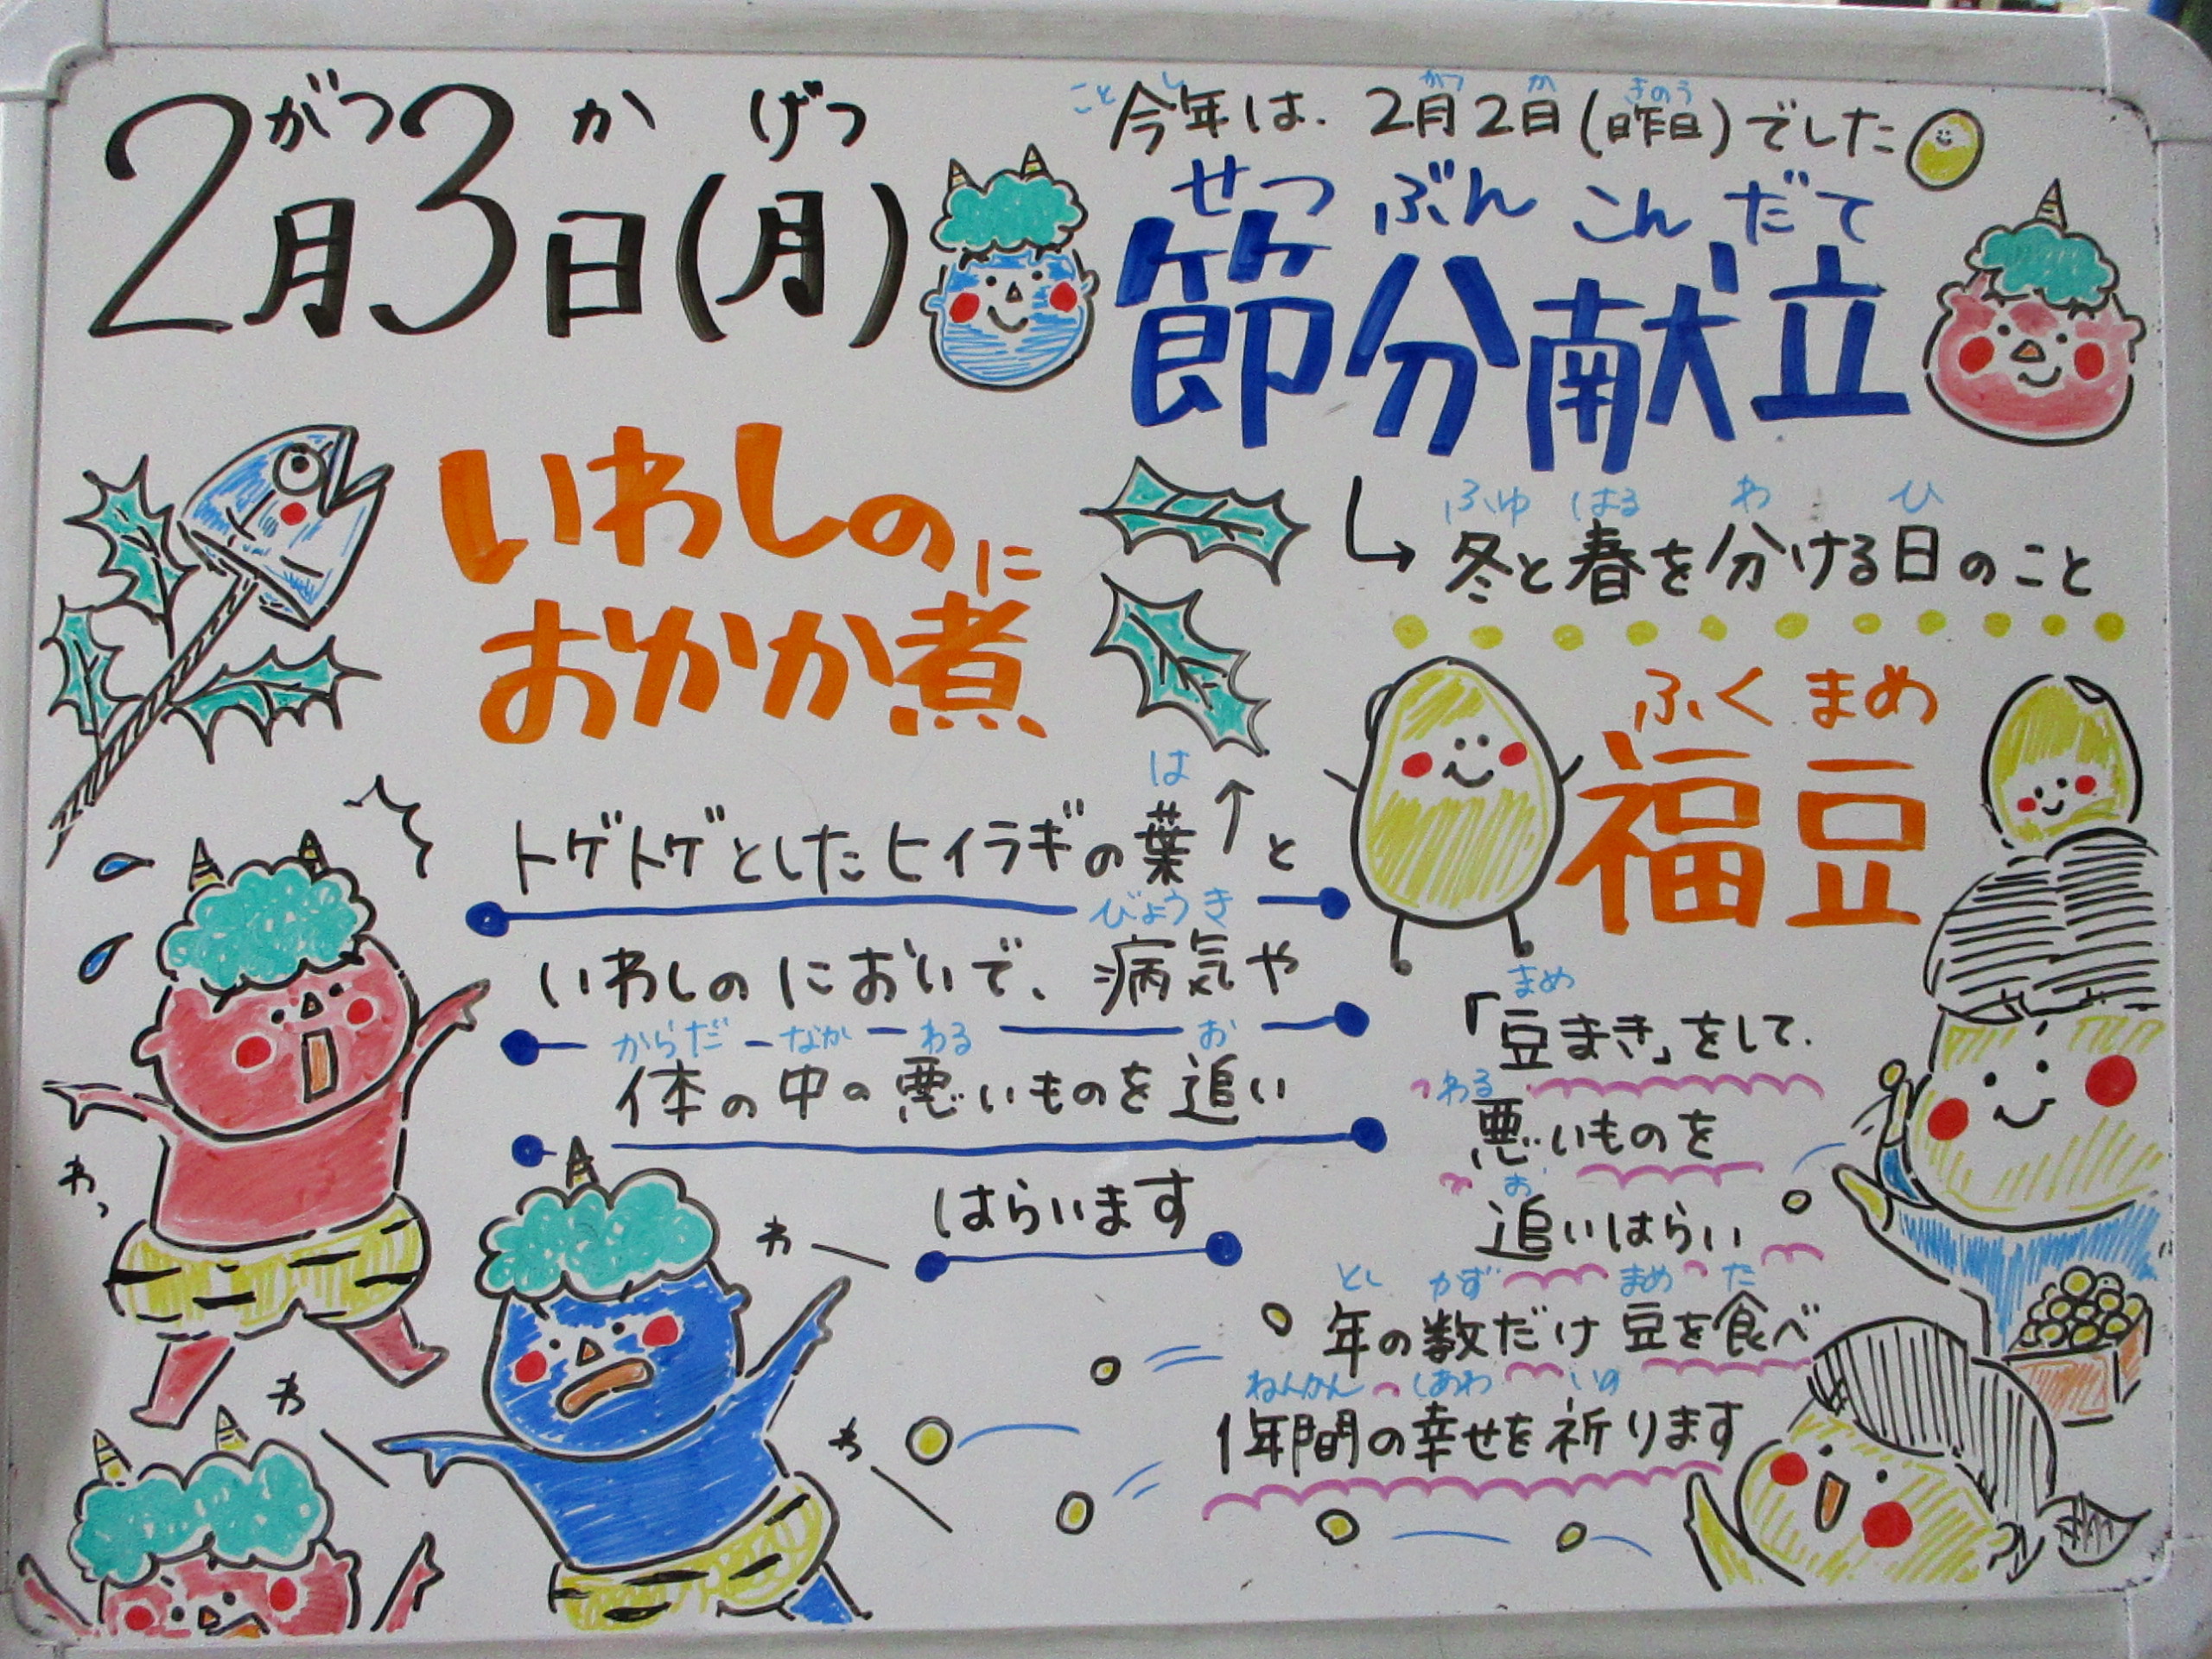 2月3日(月)
がつ か げつ
今年は、2月2日(昨日)でした
こと し がつ か きのう
せつ ぶん こん だて
節分献立
ふゆ はる わ ひ
冬と春を分ける日のこと
いわしの
に
おかか煮
は
トゲトゲとしたヒイラギの葉↑と
びょうき
いわしのにおいで、病気や
からだ なか わる お
体の中の悪いものを追い
はらいます
ふく まめ
福豆
まめ
「豆まき」をして、
わる
悪いものを
お
追いはらい
とし かず まめ た
年の数だけ豆を食べ
ねんかん しあわ いの
1年間の幸せを祈ります
わっ
わ
わ
わ